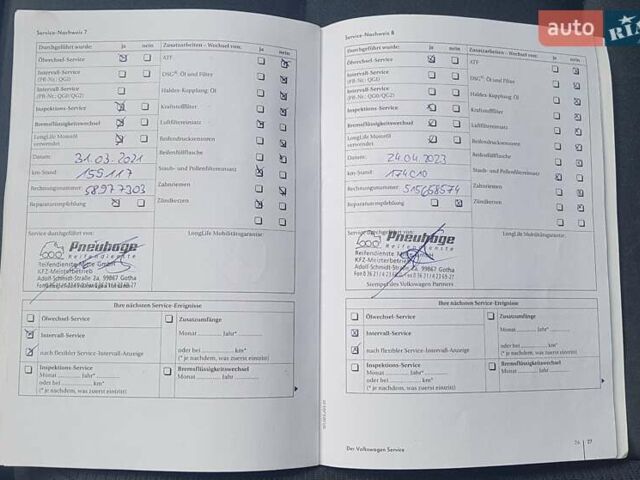 auto RIA
Service-Nachweis 7
Durchgeführt wurde: ja nein
Ölwechsel-Service
Intervall-Service
(PR-Nr.: QG1)
Intervall-Service
(PR-Nr.: QG0/QG2)
Inspektions-Service
Bremsflüssigkeitswechsel
LongLife Motoröl
verwendet
Datum: 31.03.2021
km-Stand: 159 117
Rechnungsnummer: 58977303
Reparaturempfehlung
Zusatzarbeiten - Wechsel von: ja nein
ATF
DSG®: Öl und Filter
Haldex-Kupplung: Öl
Kraftstofffilter
Luftfiltereinsatz
Reifendrucksensoren
Reifenfüllflasche
Staub- und Pollenfiltereinsatz
Zahnriemen
Zündkerzen
Service durchgeführt von:
LongLife Mobilitätsgarantie:
Pneuhage
Reifendienste
Reifendienste Mitte GmbH
KFZ-Meisterbetrieb
Adolf-Schmidt-Straße 2a, 99867 Gotha
Ihre nächsten Service-Ereignisse
Ölwechsel-Service
Intervall-Service
nach flexibler Service-Intervall-Anzeige
Inspektions-Service
Monat ........ Jahr*
oder bei ........ km*
(* je nachdem, was zuerst eintritt)
Zusatzumfänge
Monat ........ Jahr*
oder bei ........ km*
(* je nachdem, was zuerst eintritt)
Bremsflüssigkeitswechsel
Monat ........ Jahr
Service-Nachweis 8
Durchgeführt wurde: ja nein
Ölwechsel-Service
Intervall-Service
(PR-Nr.: QG1)
Intervall-Service
(PR-Nr.: QG0/QG2)
Inspektions-Service
Bremsflüssigkeitswechsel
LongLife Motoröl
verwendet
Datum: 24.04.2023
km-Stand: 174010
Rechnungsnummer: 515658574
Reparaturempfehlung
Zusatzarbeiten - Wechsel von: ja nein
ATF
DSG®: Öl und Filter
Haldex-Kupplung: Öl
Kraftstofffilter
Luftfiltereinsatz
Reifendrucksensoren
Reifenfüllflasche
Staub- und Pollenfiltereinsatz
Zahnriemen
Zündkerzen
Service durchgeführt von:
LongLife Mobilitätsgarantie:
Pneuhage
Reifendienste
Reifendienste Mitte GmbH
KFZ-Meisterbetrieb
Adolf-Schmidt-Straße 2a, 99867 Gotha
Stempel des Volkswagen Partners
Ihre nächsten Service-Ereignisse
Ölwechsel-Service
Intervall-Service
nach flexibler Service-Intervall-Anzeige
Inspektions-Service
Monat ........ Jahr*
oder bei ........ km*
(* je nachdem, was zuerst eintritt)
Zusatzumfänge
Monat ........ Jahr*
oder bei ........ km*
(* je nachdem, was zuerst eintritt)
Bremsflüssigkeitswechsel
Monat ........ Jahr
Der Volkswagen Service
26 27